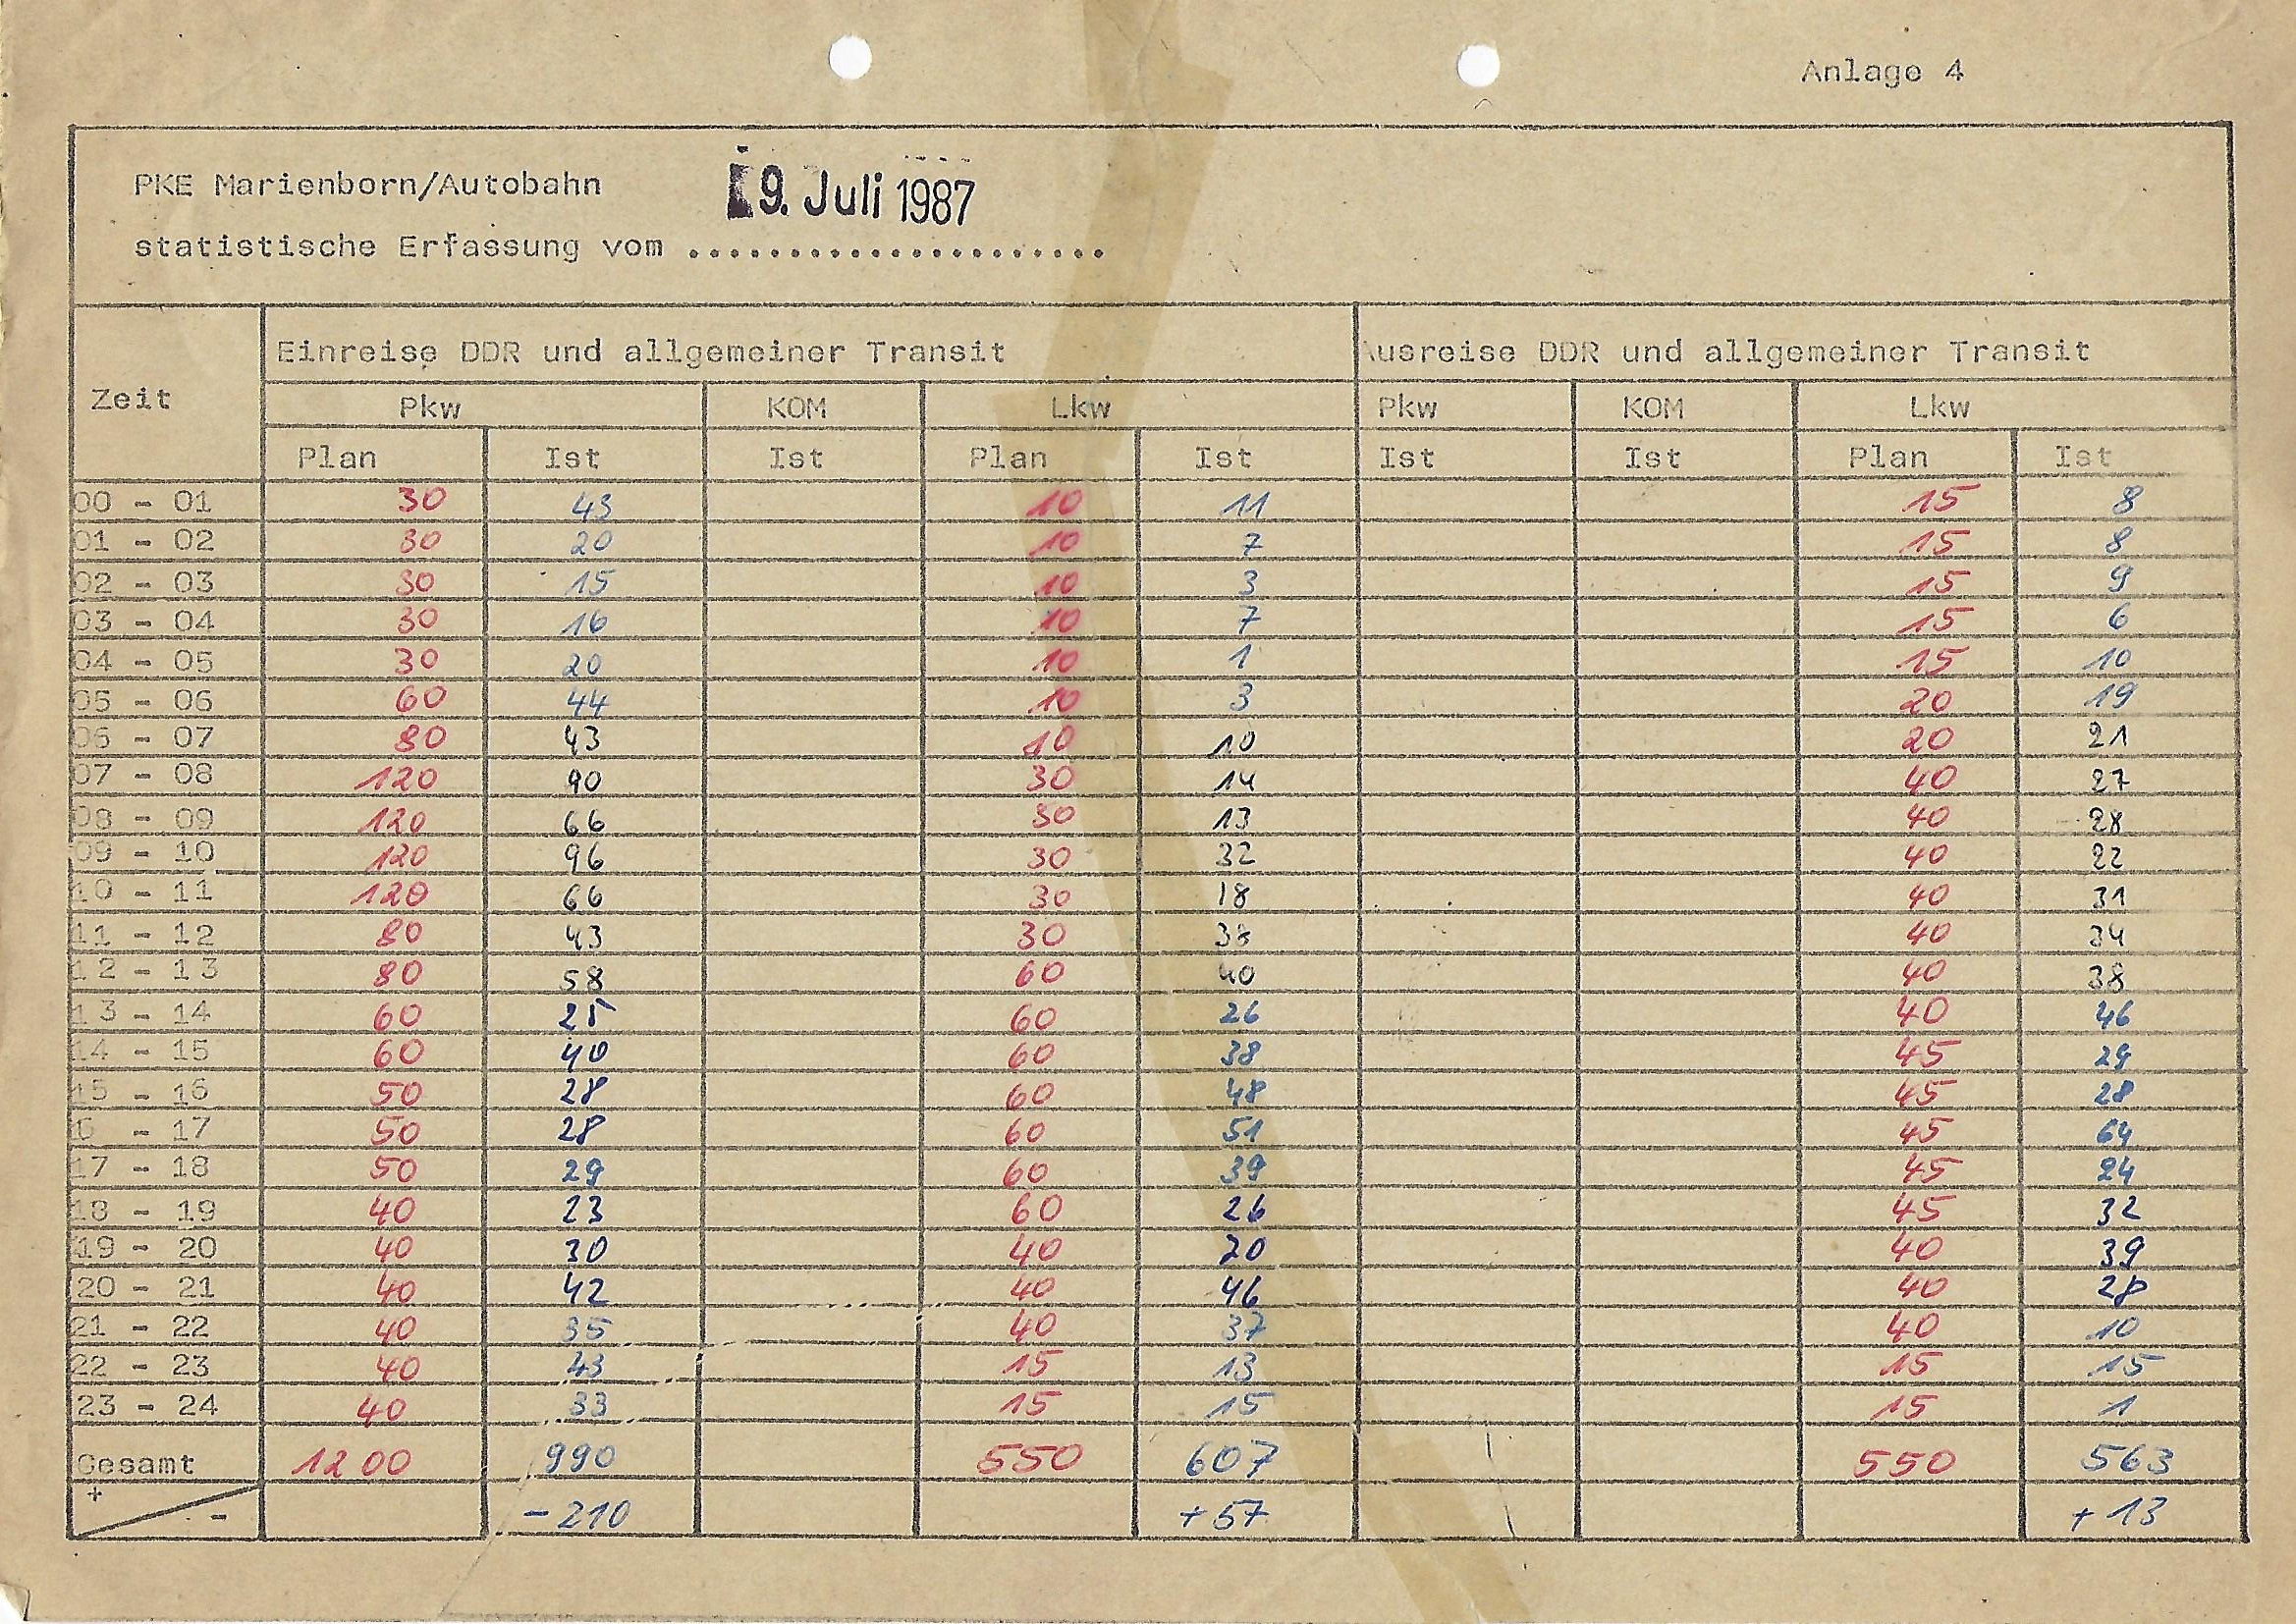 Anlage 4
PKE Marienborn/Autobahn
9. Juli 1987
statistische Erfassung vom .....................
Zeit
Einreise DDR und allgemeiner Transit
Ausreise DDR und allgemeiner Transit
Pkw KOM Lkw Pkw KOM Lkw
Plan Ist Ist Plan Ist Ist Ist Plan Ist
00 - 01 30 43 10 11 15 8
01 - 02 30 20 10 7 15 8
02 - 03 30 15 10 3 15 9
03 - 04 30 16 10 7 15 6
04 - 05 30 20 10 1 15 10
05 - 06 60 44 10 3 20 19
06 - 07 80 43 10 10 20 21
07 - 08 120 90 30 14 40 27
08 - 09 120 66 30 13 40 28
09 - 10 120 96 30 32 40 22
10 - 11 120 66 30 18 40 31
11 - 12 80 43 30 38 40 34
12 - 13 80 58 60 40 40 38
13 - 14 60 25 60 26 40 46
14 - 15 60 40 60 38 45 29
15 - 16 50 28 60 48 45 28
6 - 17 50 28 60 51 45 64
17 - 18 50 29 60 39 45 24
18 - 19 40 23 60 26 45 32
19 - 20 40 30 40 20 40 39
20 - 21 40 42 40 46 40 28
21 - 22 40 35 40 37 40 10
22 - 23 40 43 15 13 15 15
23 - 24 40 33 15 15 15 1
Gesamt 1200 990 550 607 550 563
+ - -210 +57 +13